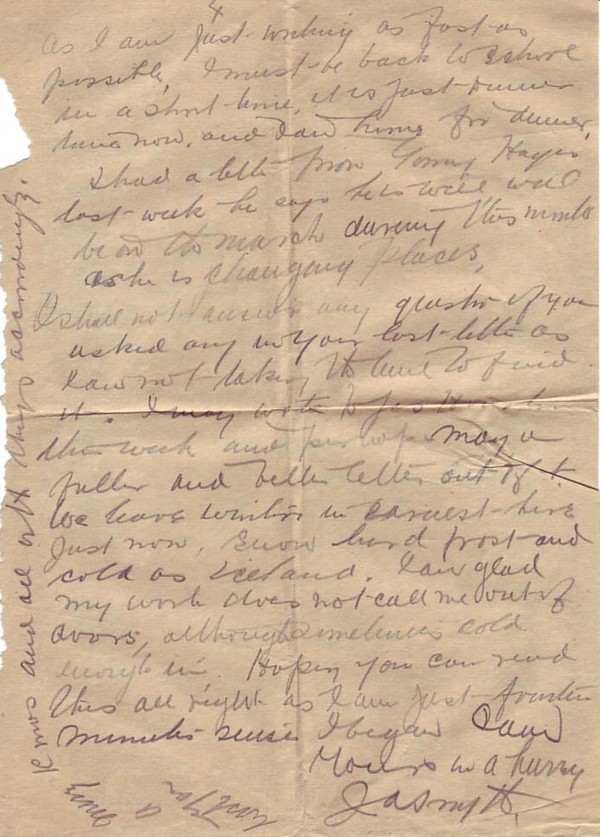 4
as I am just writing as fast as
possible, I must be back to school
in a short time, it is just dinner
time now, and I am home for dinner,
I had a letter from Tommy Hayes
last week he says he is well will
be on the march during this month
as he is changing places,
I shall not answer any question if you
asked any in your last letter as
I am not taking the time to find
it. I may write to
this week and perhaps may a
fuller and better letter out of it.
We have winter in earnest here
just now, snow hard frost and
cold as Iceland. I am glad
my work does not call me out of
doors, although sometimes cold
enough in. Hoping you can read
this all right as I am just fourteen
minutes since I began I am
Yours in a hurry
JASmyth.
Xmos and all other things accordingly.
a